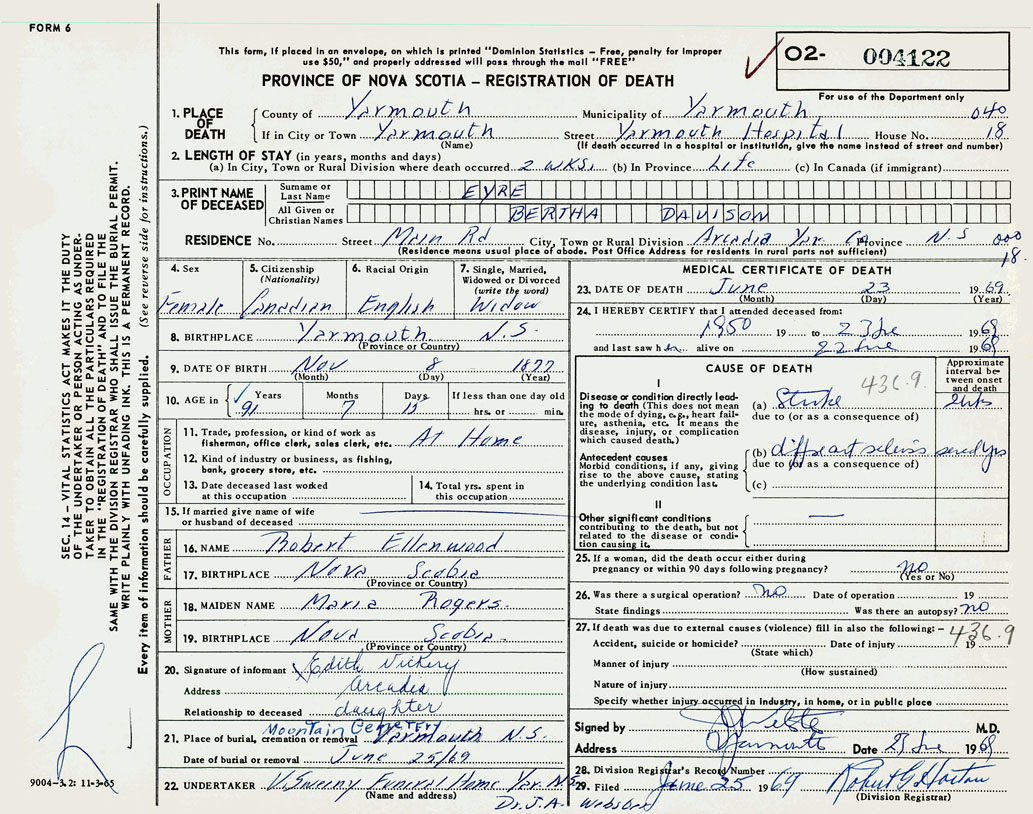 FORM 6
This form, if placed in an envelope, on which is printed "Dominion Statistics – Free, penalty for improper
use $50," and properly addressed will pass through the mail "FREE"
PROVINCE OF NOVA SCOTIA – REGISTRATION OF DEATH
O2- 004122
For use of the Department only
1. PLACE OF DEATH
County of Yarmouth Municipality of Yarmouth 040
If in City or Town Yarmouth Street Yarmouth Hospital House No. 18
(Name) (If death occurred in a hospital or institution, give the name instead of street and number)
2. LENGTH OF STAY (in years, months and days)
(a) In City, Town or Rural Division where death occurred 2 WKS. (b) In Province Life (c) In Canada (if immigrant)
3. PRINT NAME OF DECEASED
Surname or Last Name EYRE
All Given or Christian Names BERTHA DAVISON
RESIDENCE No. Street Main Rd City, Town or Rural Division Arcadia Yar. Co Province N.S 000
(Residence means usual place of abode. Post Office Address for residents in rural parts not sufficient) 18.
4. Sex Female
5. Citizenship (Nationality) Canadian
6. Racial Origin English
7. Single, Married, Widowed or Divorced (write the word) Widow
8. BIRTHPLACE Yarmouth N.S.
(Province or Country)
9. DATE OF BIRTH Nov 8 1877
(Month) (Day) (Year)
10. AGE in Years Months Days If less than one day old
91 7 15 hrs. or min.
OCCUPATION
11. Trade, profession, or kind of work as fisherman, office clerk, sales clerk, etc. At Home
12. Kind of industry or business, as fishing, bank, grocery store, etc.
13. Date deceased last worked at this occupation
14. Total yrs. spent in this occupation
15. If married give name of wife or husband of deceased
FATHER
16. NAME Robert Ellenwood
17. BIRTHPLACE Nova Scotia
(Province or Country)
MOTHER
18. MAIDEN NAME Maria Rogers.
19. BIRTHPLACE Nova Scotia
(Province or Country)
20. Signature of informant Edith Vickery
Address Arcadia
Relationship to deceased daughter
Mountain Cemetery
21. Place of burial, cremation or removal Yarmouth N.S.
Date of burial or removal June 25/69
22. UNDERTAKER V. Sweeny Funeral Home Yar. N.S
(Name and address)
Dr. J.A. Webster
MEDICAL CERTIFICATE OF DEATH
23. DATE OF DEATH June 23 1969
(Month) (Day) (Year)
24. I HEREBY CERTIFY that I attended deceased from:
1950 19 to 23 Jne 1969
and last saw her alive on 22 June 1969
CAUSE OF DEATH
Approximate interval between onset and death
436.9
I
Disease or condition directly leading to death (This does not mean the mode of dying, e.g., heart failure, asthenia, etc. It means the disease, injury, or complication which caused death.)
(a) Stroke 2 wks
due to (or as a consequence of)
Antecedent causes
Morbid conditions, if any, giving rise to the above cause, stating the underlying condition last.
(b) diff art sclerosis several yrs
due to (or as a consequence of)
(c)
II
Other significant conditions
contributing to the death, but not related to the disease or condition causing it.
25. If a woman, did the death occur either during pregnancy or within 90 days following pregnancy? no
(Yes or No)
26. Was there a surgical operation? no Date of operation 19
State findings Was there an autopsy? no
27. If death was due to external causes (violence) fill in also the following: – 436.9
Accident, suicide or homicide? Date of injury 19
(State which)
Manner of injury
(How sustained)
Nature of injury
Specify whether injury occurred in industry, in home, or in public place
Signed by M.D.
Address Yarmouth Date 23 Jne 1969
28. Division Registrar's Record Number
29. Filed June 25 1969 Robert G Horton
(Division Registrar)
SEC. 14 – VITAL STATISTICS ACT MAKES IT THE DUTY
OF THE UNDERTAKER OR PERSON ACTING AS UNDER-
TAKER TO OBTAIN ALL THE PARTICULARS REQUIRED
IN THE "REGISTRATION OF DEATH" AND TO FILE THE
SAME WITH THE DIVISION REGISTRAR WHO SHALL ISSUE THE BURIAL PERMIT.
WRITE PLAINLY WITH UNFADING INK. THIS IS A PERMANENT RECORD.
Every item of information should be carefully supplied. (See reverse side for instructions.)
9004-3.2: 11-3-65